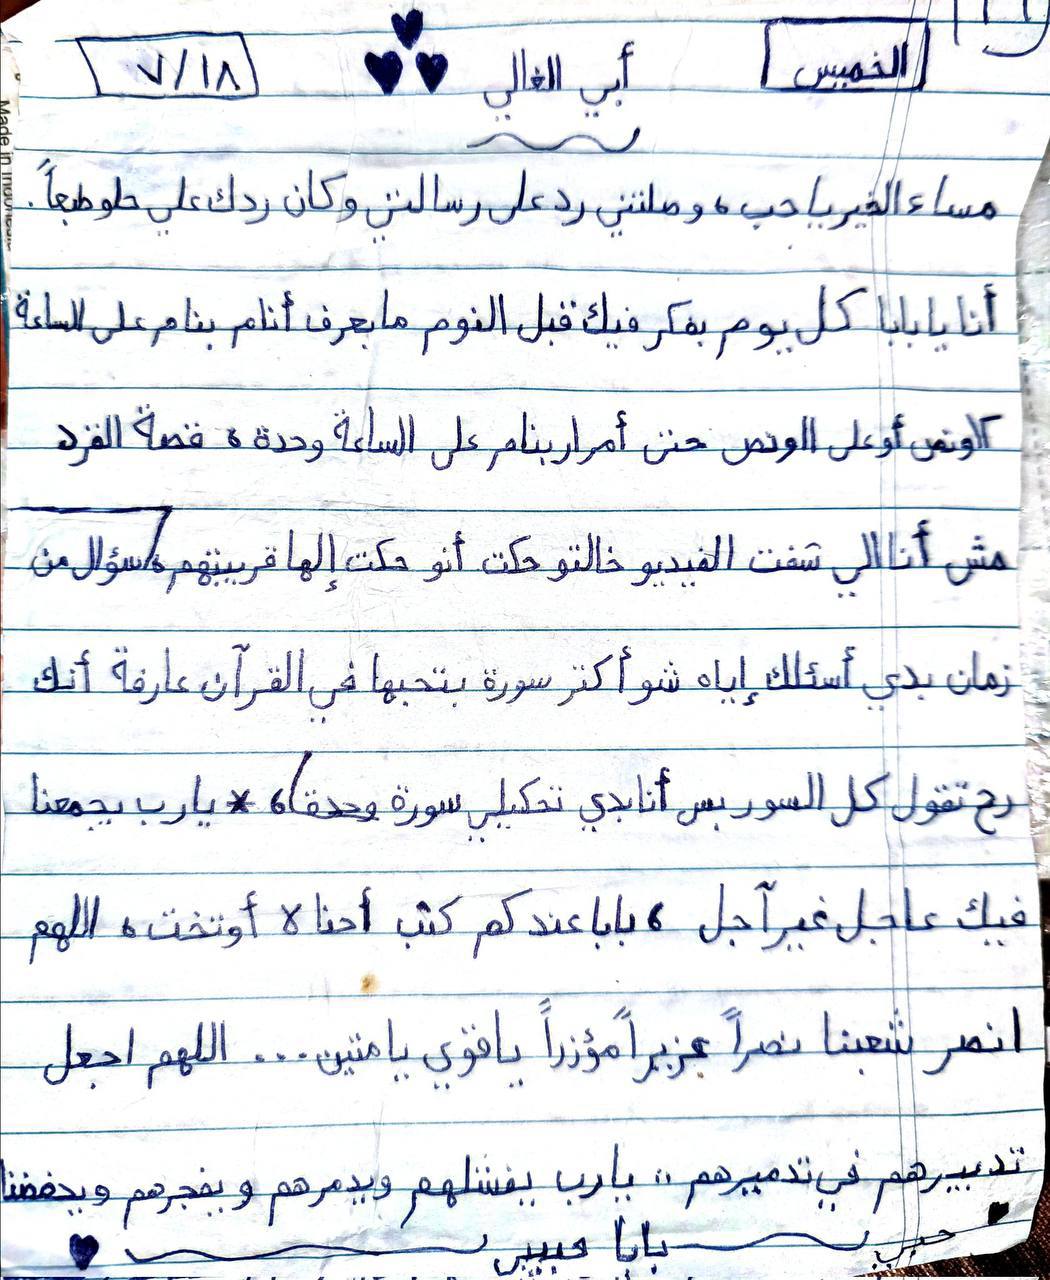 الخميس أبي الغالي ٧/١٨
مساء الخير يا حب، وصلتني رد على رسالتي وكان ردك علي حلو طبعاً.
أنا يا بابا كل يوم بفكر فيك قبل النوم ما بعرف أنام بنام على الساعة
الونص أو على الونص حتى أمرار بنام على الساعة وحدة، قصة القرد
مش أنا الي شفت الفيديو خالتو حكت أنو حكت إلها قريبتهم، سؤال من
زمان بدي أسئلك إياه شو أكتر سورة بتحبها في القرآن عارفة أنك
رح تقول كل السور بس أنا بدي تحكيلي سورة وحدة، * يارب يجمعنا
فيك عاجل غير آجل، بابا عندكم كتب أحنا لا أوتخت، اللهم
انصر شعبنا نصراً عزيراً مؤزراً يا قوي يا متين... اللهم اجعل
تدبيرهم في تدميرهم،، يارب يفشلهم ويدمرهم ويفجرهم ويحفضنا
بابا حبيبي